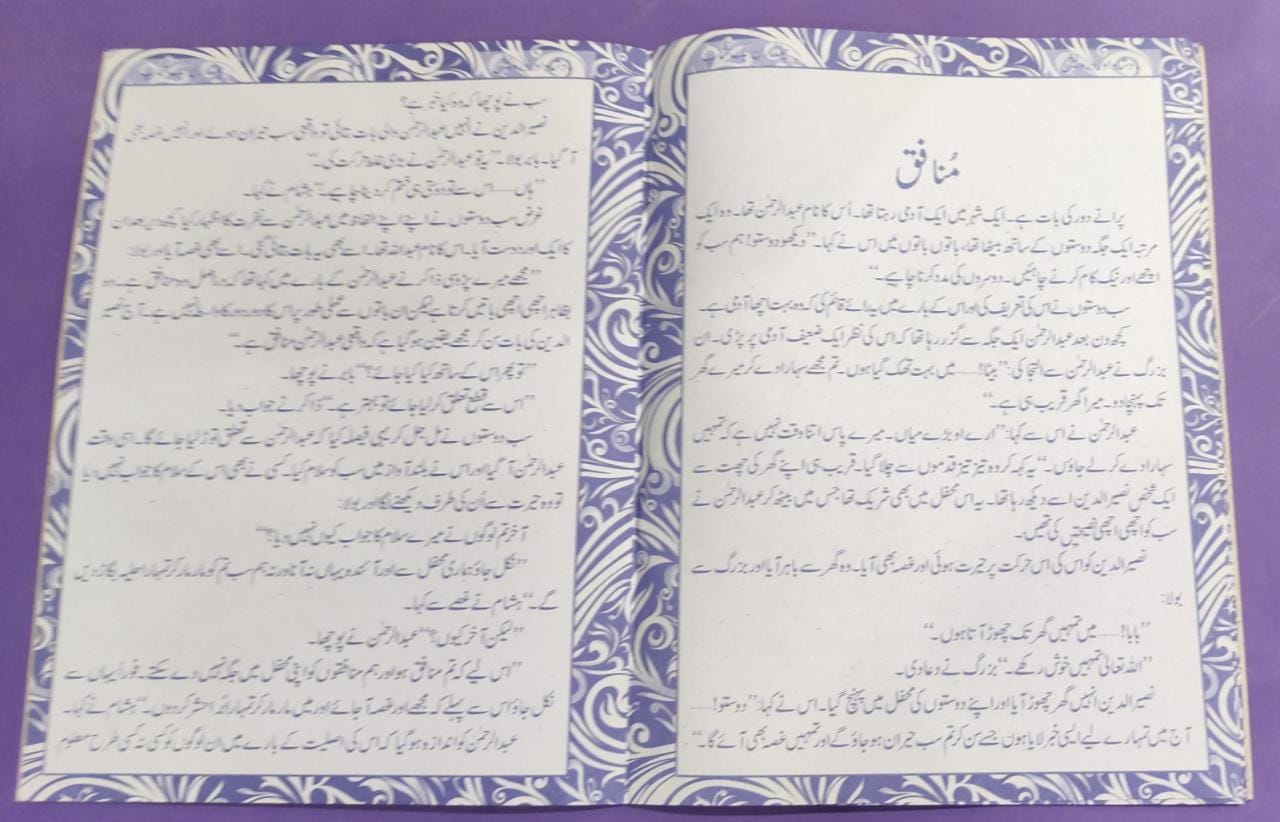 مُنافق
پرانے دور کی بات ہے۔ ایک شہر میں ایک آدمی رہتا تھا۔ اُس کا نام عبدالرحمٰن تھا۔ وہ ایک
مرتبہ ایک جگہ دوستوں کے ساتھ بیٹھا تھا، باتوں باتوں میں اس نے کہا۔ ”دیکھو دوستو! ہم سب کو
اچھے اور نیک کام کرنے چاہئیں۔ دوسروں کی مدد کرنا چاہیے۔“
سب دوستوں نے اس کی تعریف کی اور اس کے بارے میں یہ رائے قائم کی کہ وہ بہت اچھا آدمی ہے۔
کچھ دن بعد عبدالرحمٰن ایک جگہ سے گزر رہا تھا کہ اس کی نظر ایک ضعیف آدمی پر پڑی۔ ان
بزرگ نے عبدالرحمٰن سے التجا کی: ”بیٹا!...... میں بہت تھک گیا ہوں۔ تم مجھے سہارا دے کر میرے گھر
تک پہنچا دو۔ میرا گھر قریب ہی ہے۔“
عبدالرحمٰن نے اس سے کہا: ”ارے او بڑے میاں۔ میرے پاس اتنا وقت نہیں ہے کہ تمہیں
سہارا دے کر لے جاؤں۔“ یہ کہہ کر وہ تیز تیز قدموں سے چلا گیا۔ قریب ہی اپنے گھر کی چھت سے
ایک شخص نصیر الدین اسے دیکھ رہا تھا۔ یہ اس محفل میں بھی شریک تھا جس میں بیٹھ کر عبدالرحمٰن نے
سب کو اچھی اچھی نصیحتیں کی تھیں۔
نصیر الدین کو اس کی اس حرکت پر حیرت ہوئی اور غصہ بھی آیا۔ وہ گھر سے باہر آیا اور بزرگ سے
بولا:
”بابا!...... میں تمہیں گھر تک چھوڑ آتا ہوں۔“
”اللہ تعالیٰ تمہیں خوش رکھے۔“ بزرگ نے دعا دی۔
نصیر الدین انہیں گھر چھوڑ آیا اور اپنے دوستوں کی محفل میں پہنچ گیا۔ اس نے کہا: ”دوستو!......
آج میں تمہارے لیے ایسی خبر لایا ہوں جسے سن کر تم سب حیران ہو جاؤ گے اور تمہیں غصہ بھی آئے گا۔“
سب نے پوچھا کہ وہ کیا خبر ہے؟
نصیر الدین نے انہیں عبدالرحمٰن والی بات بتائی تو واقعی سب حیران ہوئے اور انہیں غصہ بھی
آ گیا۔ بابر بولا۔ ”یہ تو عبدالرحمٰن نے بڑی غلط حرکت کی۔“
”ہاں...... اس سے تو دوستی ہی ختم کر دینا چاہیے۔“ ہشام نے کہا۔
غرض سب دوستوں نے اپنے اپنے الفاظ میں عبدالرحمٰن سے نفرت کا اظہار کیا کچھ دیر بعد ان
کا ایک اور دوست آیا۔ اس کا نام عبداللہ تھا۔ اسے بھی یہ بات بتائی گئی۔ اسے بھی غصہ آیا اور بولا:
”مجھے میرے پڑوسی ذاکر نے عبدالرحمٰن کے بارے میں کہا تھا کہ دراصل وہ منافق ہے۔ وہ
بظاہر اچھی اچھی باتیں کرتا ہے لیکن ان باتوں سے عملی طور پر اس کا دور دور کا واسطہ نہیں ہے۔ آج نصیر
الدین کی بات سن کر مجھے یقین ہو گیا ہے کہ واقعی عبدالرحمٰن منافق ہے۔“
”تو پھر اس کے ساتھ کیا کیا جائے؟“ بابر نے پوچھا۔
”اس سے قطع تعلق کر لیا جائے تو بہتر ہے۔“ ذاکر نے جواب دیا۔
سب دوستوں نے مل جل کر یہی فیصلہ کیا کہ عبدالرحمٰن سے تعلق توڑ لیا جائے گا۔ اسی وقت
عبدالرحمٰن آ گیا اور اس نے بلند آواز میں سب کو سلام کیا۔ کسی نے بھی اس کے سلام کا جواب نہیں دیا
تو وہ حیرت سے اُن کی طرف دیکھنے لگا اور بولا:
آخر تم لوگوں نے میرے سلام کا جواب کیوں نہیں دیا؟“
”نکل جاؤ ہماری محفل سے اور آئندہ یہاں نہ آنا ورنہ ہم سب تم کو مار مار کر تمہارا حلیہ بگاڑ دیں
گے۔“ ہشام نے غصے سے کہا۔
”لیکن آخر کیوں؟“ عبدالرحمٰن نے پوچھا۔
”اس لیے کہ تم منافق ہو اور ہم منافقوں کو اپنی محفل میں جگہ نہیں دے سکتے۔ فوراً یہاں سے
نکل جاؤ اس سے پہلے کہ مجھے اور غصہ آ جائے اور میں مار مار کر تمہارا بُرا حشر کر دوں۔“ ہشام نے کہا۔
عبدالرحمٰن کو اندازہ ہو گیا کہ اس کی اصلیت کے بارے میں ان لوگوں کو کسی نہ کسی طرح معلوم